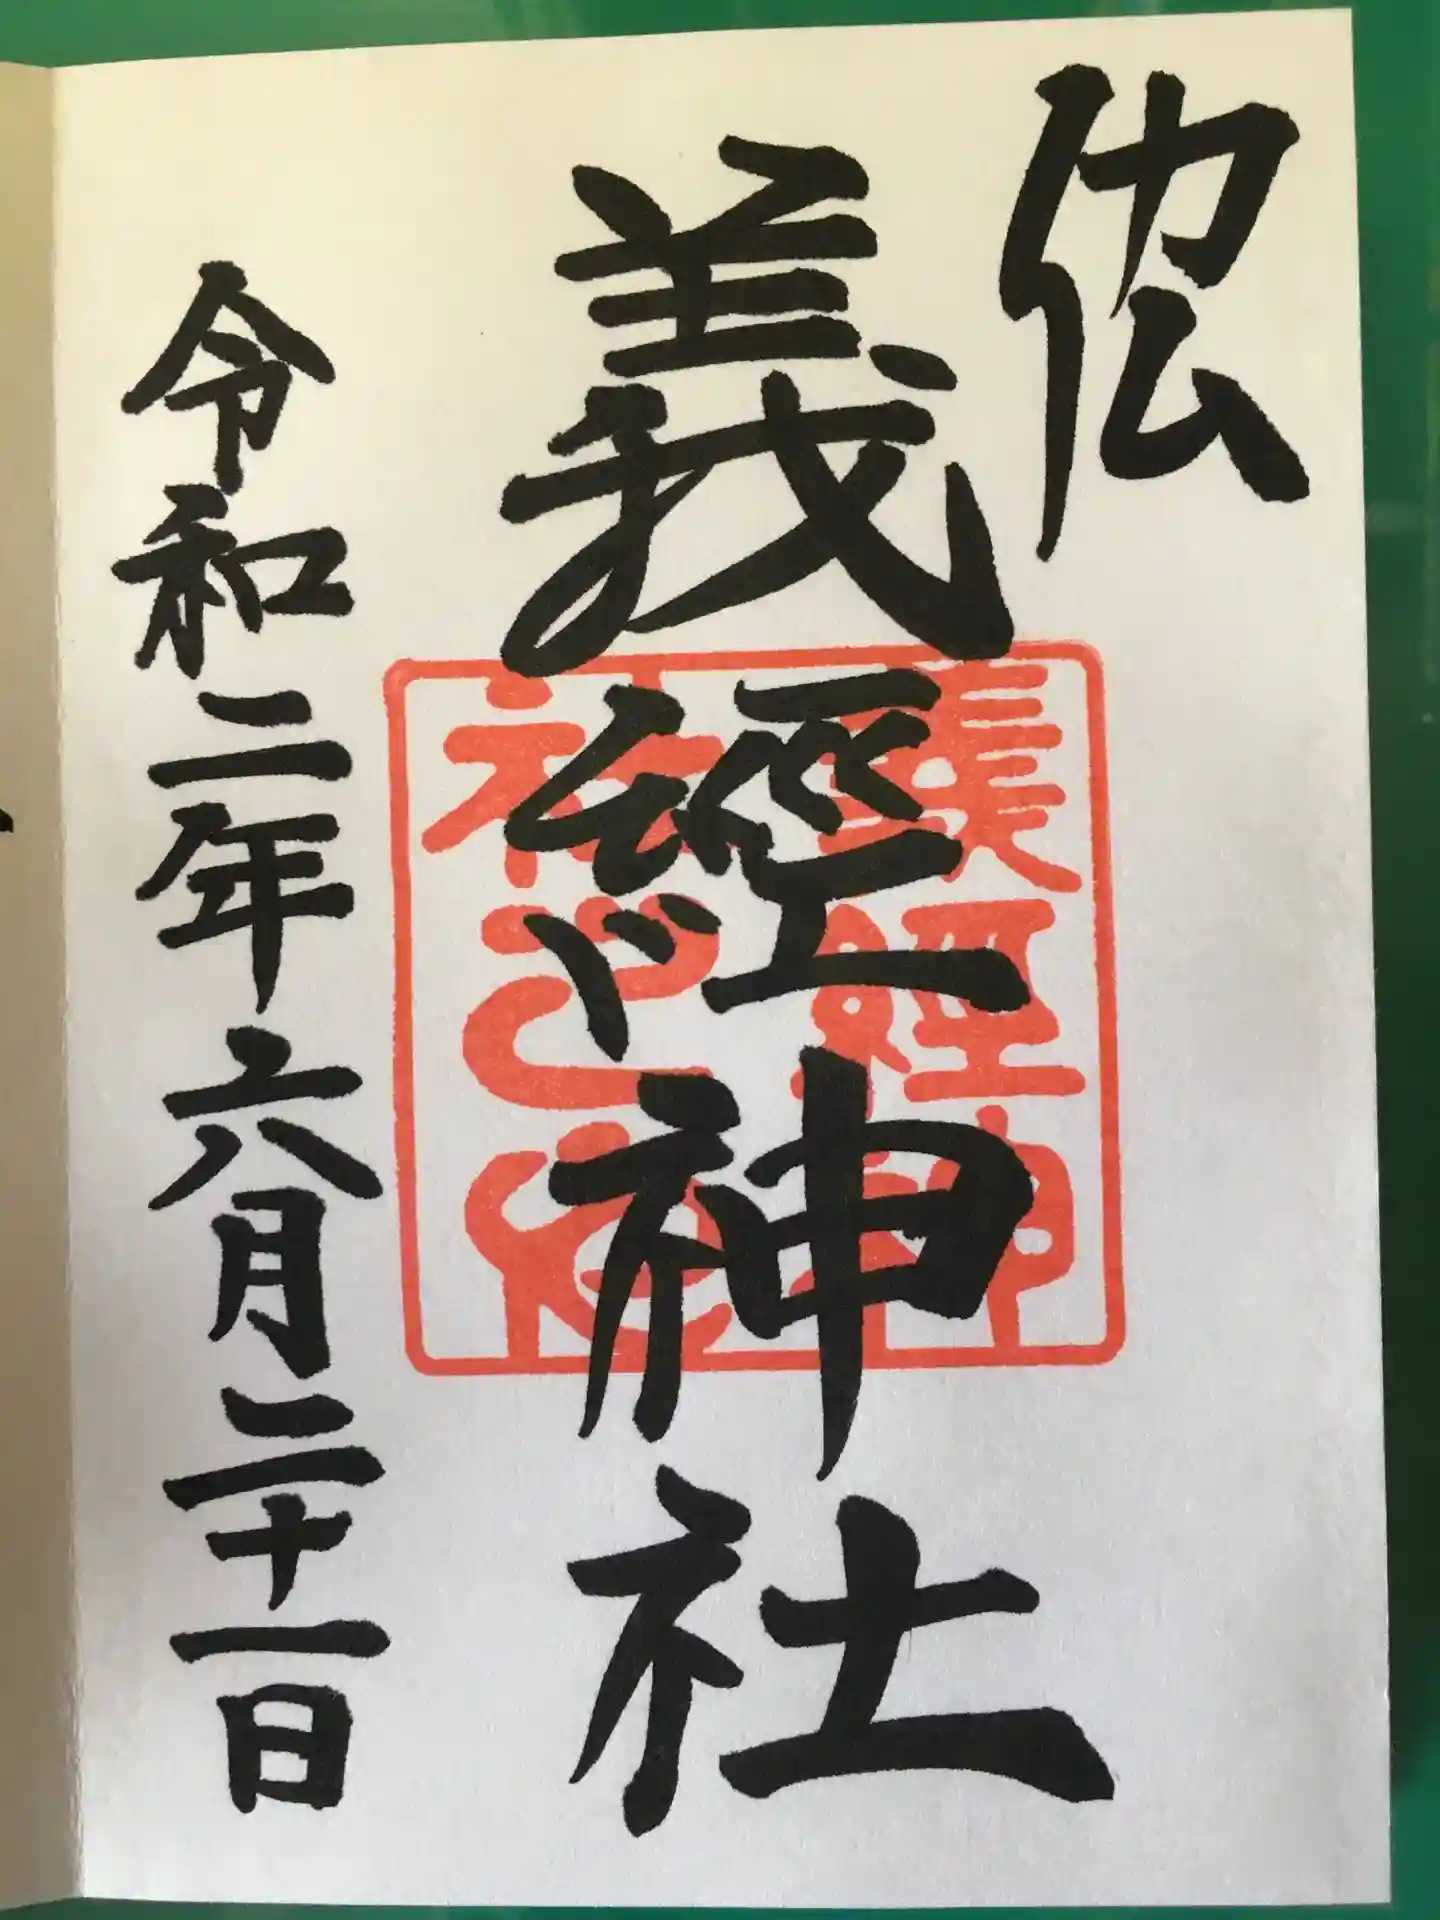 義經神社
令和二年六月二十一日
義經神
社之印